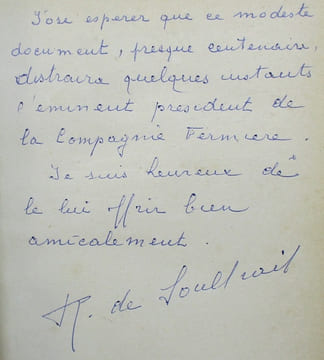 J'ose esperer que ce modeste
document, presque centenaire,
distraira quelques instants
l'éminent president de
la Compagnie Fermiere.
Je suis heureux de
le lui offrir bien
amicalement.
de Soultrait